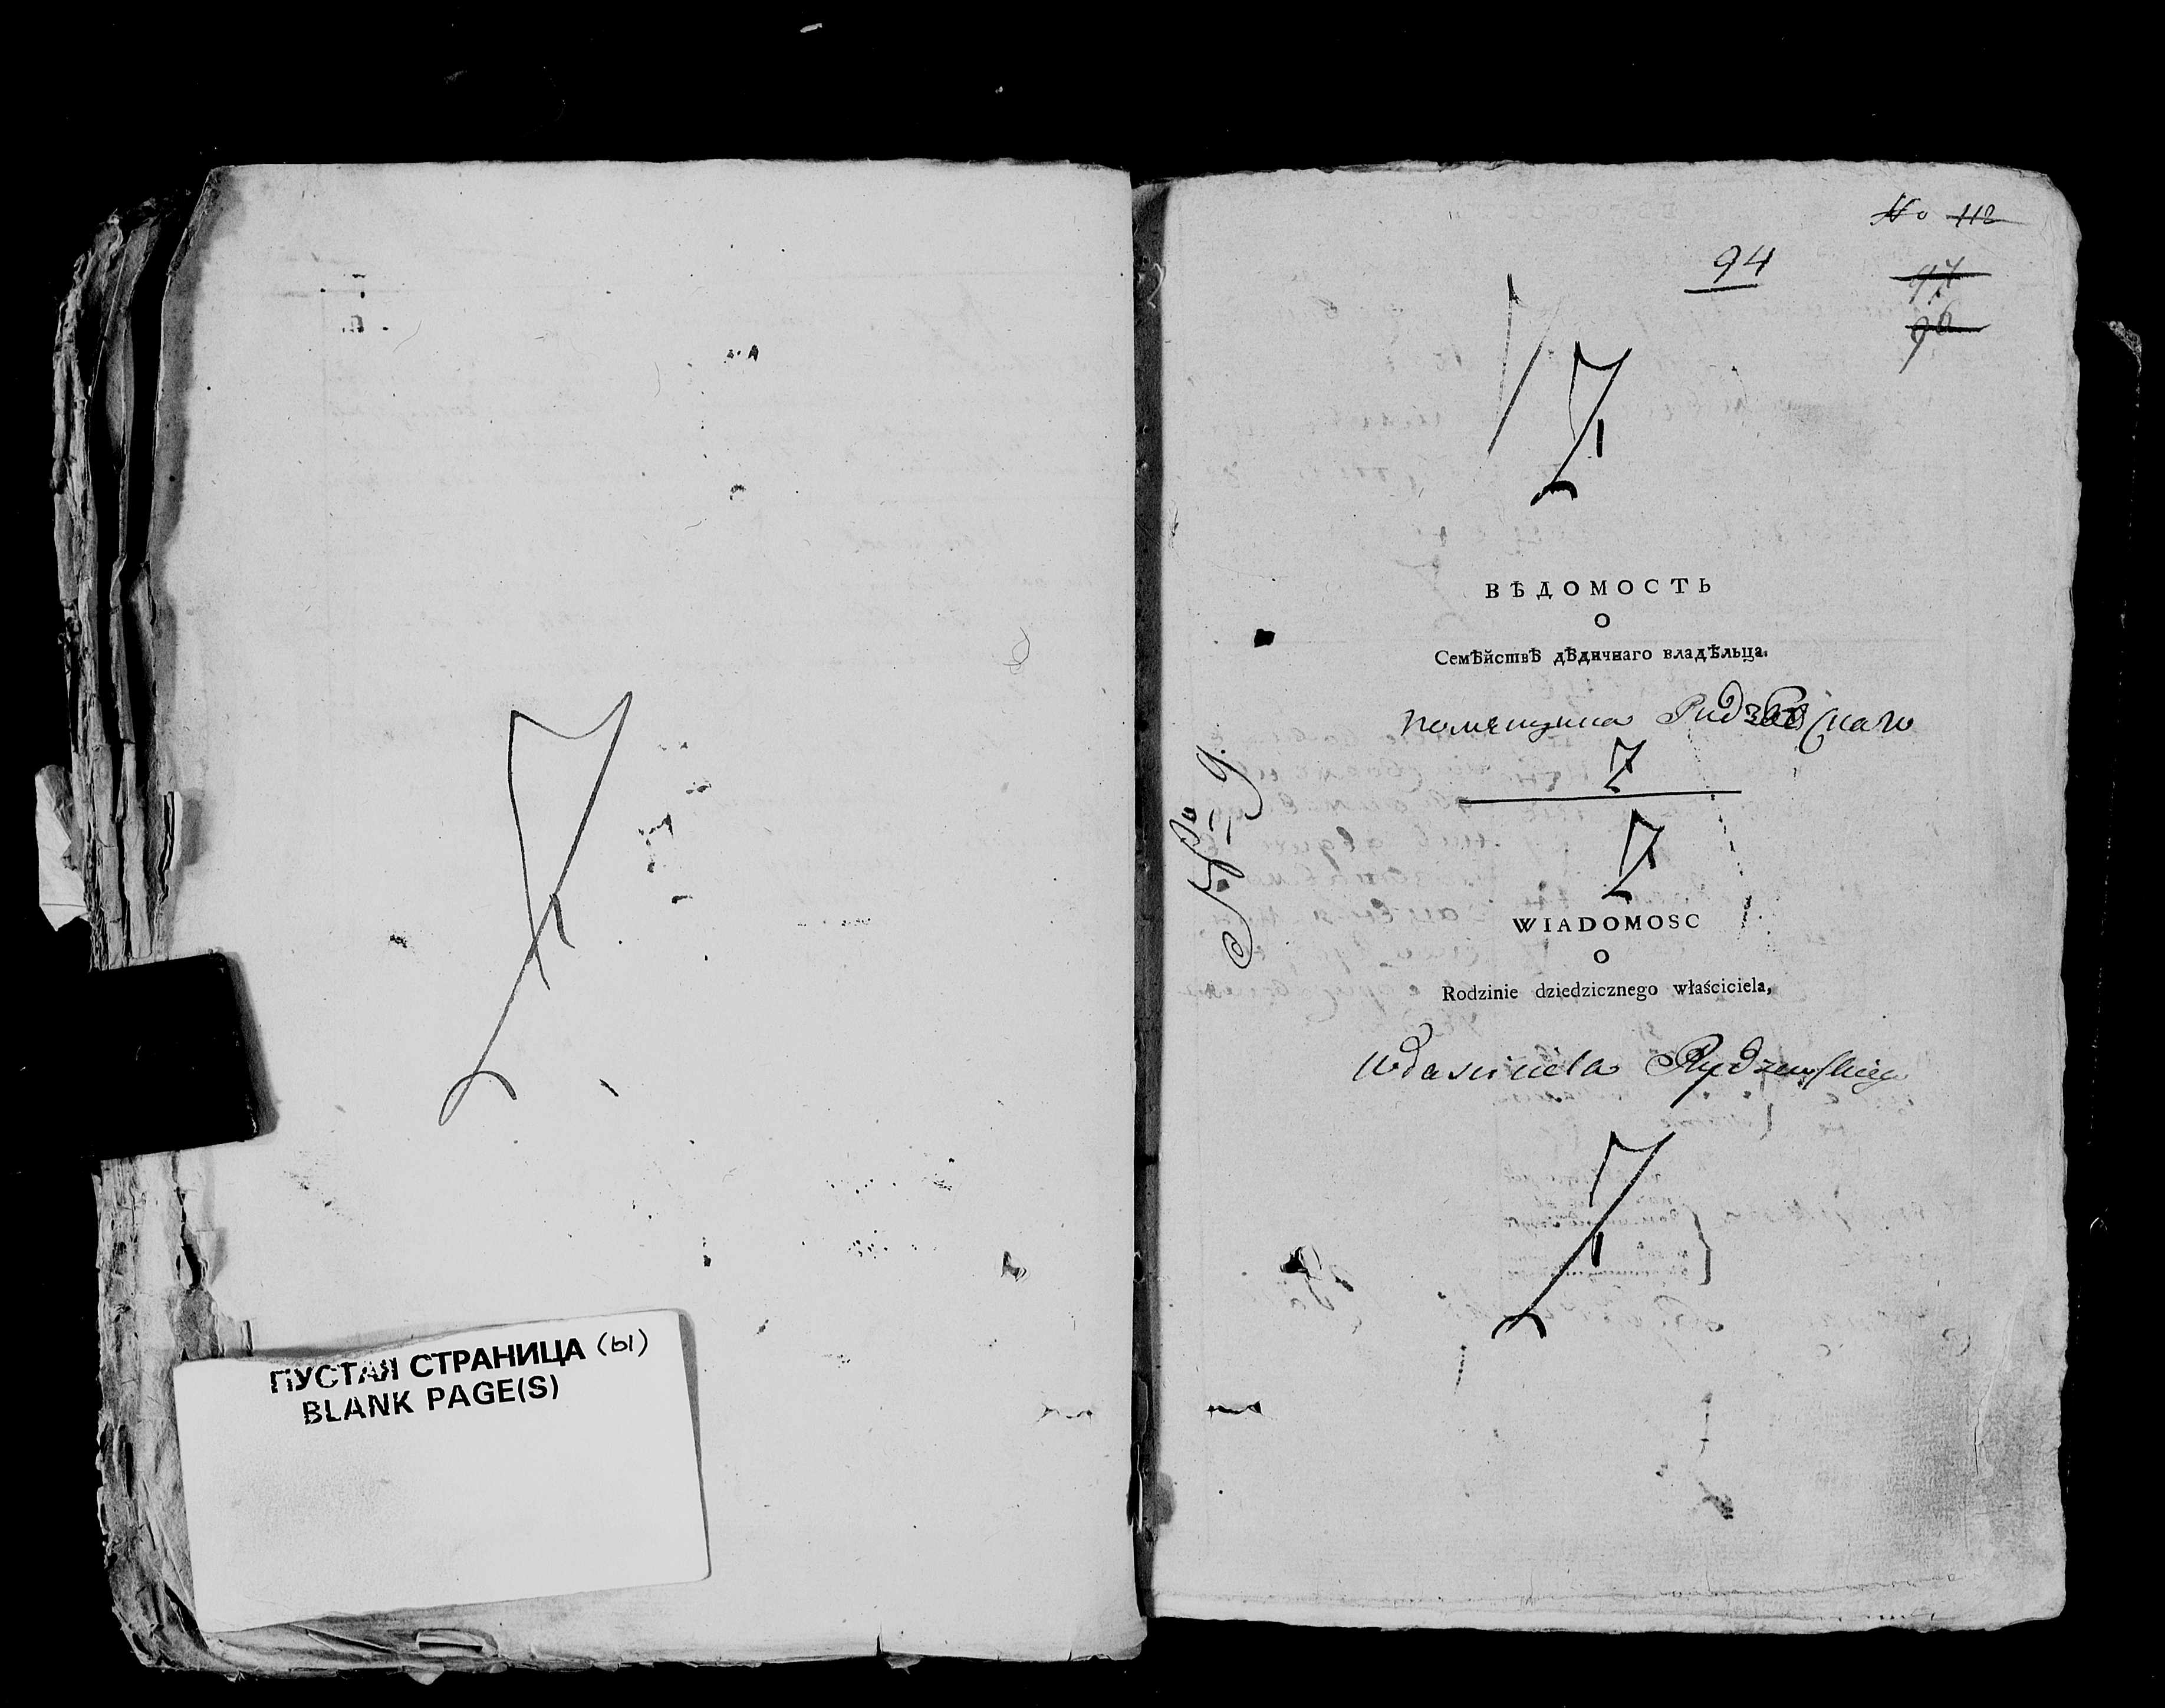 ПУСТАЯ СТРАНИЦА (ы)
BLANK PAGE(S)
No 112
94
97
96
ВѢДОМОСТЬ
О
Семѣйствѣ дѣдичнаго владѣльца.
помѣщика
No 9.
WIADOMOSC
O
Rodzinie dziedzicznego właściciela,
Właściciela Rydzewskiego